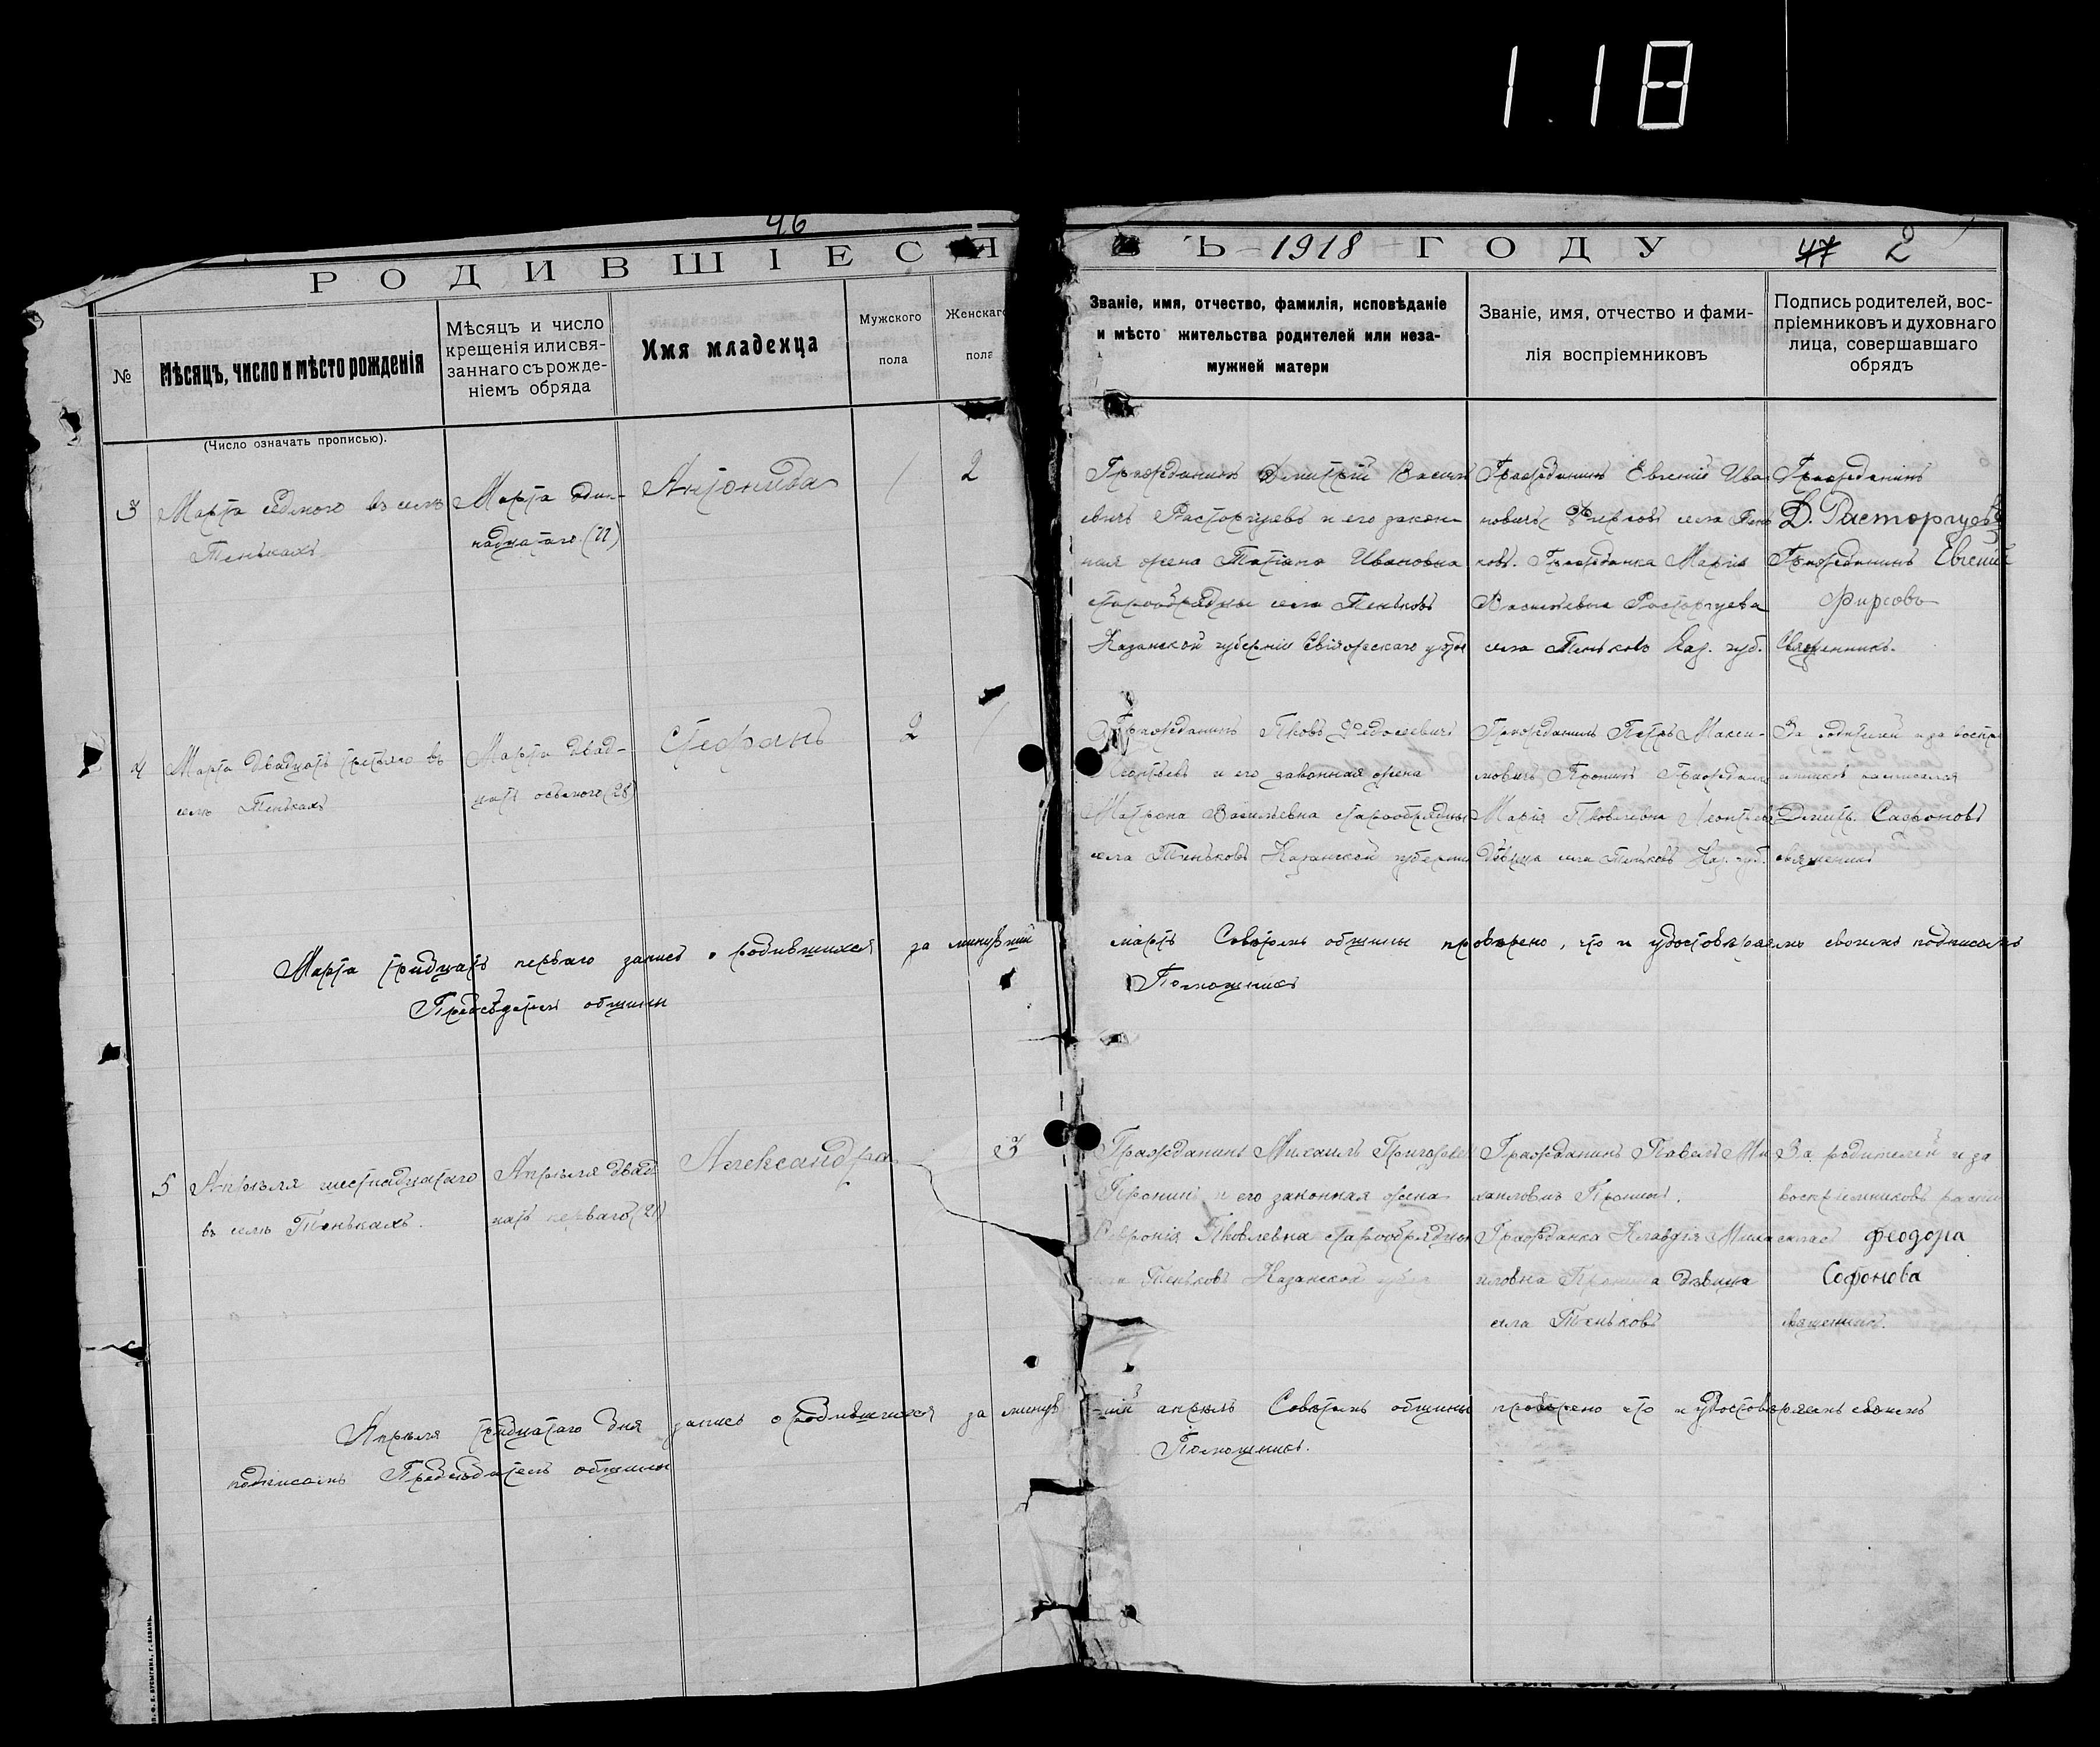 1.18
46
РОДИВШІЕСЯ ВЪ 1918 ГОДУ 47 2
№
Мѣсяцъ, число и мѣсто рожденія
(Число означать прописью).
Мѣсяцъ и число
крещенія или свя-
заннаго съ рожде-
ніемъ обряда
Имя младенца
Мужского
пола
Женскаго
пола
Званіе, имя, отчество, фамилія, исповѣданіе
и мѣсто жительства родителей или неза-
мужней матери
Званіе, имя, отчество и фами-
лія воспріемниковъ
Подпись родителей, вос-
пріемниковъ и духовнаго
лица, совершавшаго
обрядъ
3
Марта седмого въ селѣ
Тенькахъ
Марта один-
надцатаго (11)
Антонида
2
Гражданинъ Дмитрій Василь
евичъ Расторгуевъ и его закон-
ная жена Татіана Ивановна
старообрядцы села Теньковъ
Казанской губерніи Свіяжскаго уѣзда
Гражданинъ Евгеній Ива-
новичъ Фирсовъ села Тень
ковъ. Гражданка Марія
Васильевна Расторгуева
села Теньковъ Каз. губ.
Гражданинъ
Д. Расторгуевъ
Гражданинъ Евгеній
Фирсовъ
Священникъ
4
Марта двадцать третьяго въ
селѣ Тенькахъ
Марта двад-
цать осьмого (28)
Стефанъ
2
Гражданинъ Яковъ Федосеевичъ
Леонтьевъ и его законная жена
Матрона Васильевна старообрядцы
села Теньковъ Казанской губерніи
Гражданинъ Петръ Макси-
мовичъ Пронинъ Гражданка
Марія Яковлевна Леонтьева
дѣвица села Теньковъ Каз. губ.
За родителей и за воспрі
емниковъ расписался
Дмит. Сафоновъ
священникъ
Марта тридцать перваго запись о родившихся за минувшій мартъ Совѣтомъ общины провѣрено, что и удостовѣряемъ своимъ подписомъ
Предсѣдатель общины Помощникъ
5
Апрѣля шестнадцатаго
въ селѣ Тенькахъ.
Апрѣля двад-
цать перваго (21)
Александра
3
Гражданинъ Михаилъ Григорьев
Пронинъ и его законная жена
Февронія Яковлевна старообрядцы
села Теньковъ Казанской губер
Гражданинъ Павелъ Ми
хаиловичъ Пронинъ.
Гражданка Клавдія Миха
иловна Пронина дѣвица
села Теньковъ
За родителей и за
воспріемниковъ распи
сался Феодора
Софонова
священникъ.
Апрѣля тридцатаго дня запись о родившихся за минув-шій апрѣль Совѣтомъ общины провѣрено что и удостовѣряемъ своимъ
подписомъ Предсѣдатель общины Помощникъ.